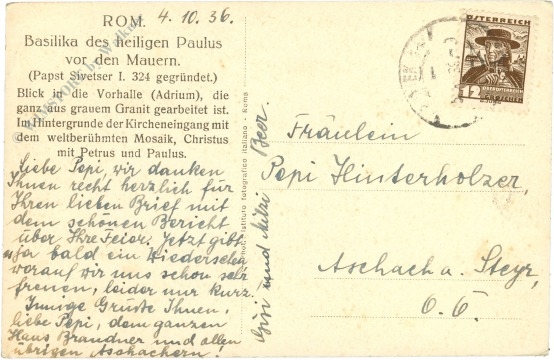 ROM. 4. 10. 36.
Basilika des heiligen Paulus
vor den Mauern.
(Papst Sivetser I. 324 gegründet.)
Blick in die Vorhalle (Adrium), die
ganz aus grauem Granit gearbeitet ist.
Im Hintergrunde der Kircheneingang mit
dem weltberühmten Mosaik, Christus
mit Petrus und Paulus.
Liebe Pepi, wir danken
Ihnen recht herzlich für
Ihren lieben Brief mit
dem schönen Bericht
über Ihre Feier. Jetzt gibt
es ja bald ein Wiedersehen
worauf wir uns schon sehr
freuen, leider nur kurz.
Innige Grüsse Ihnen,
liebe Pepi, dem ganzen
Haus Brandner und allen
übrigen Aschachern!
Gisi und Mitzi Beer.
fotografico italiano - Roma
ÖSTERREICH
12
OBERÖSTERREICH
GROSCHEN
Fräulein
Pepi Hinterholzer,
Aschach a. Steyr,
O. Ö.